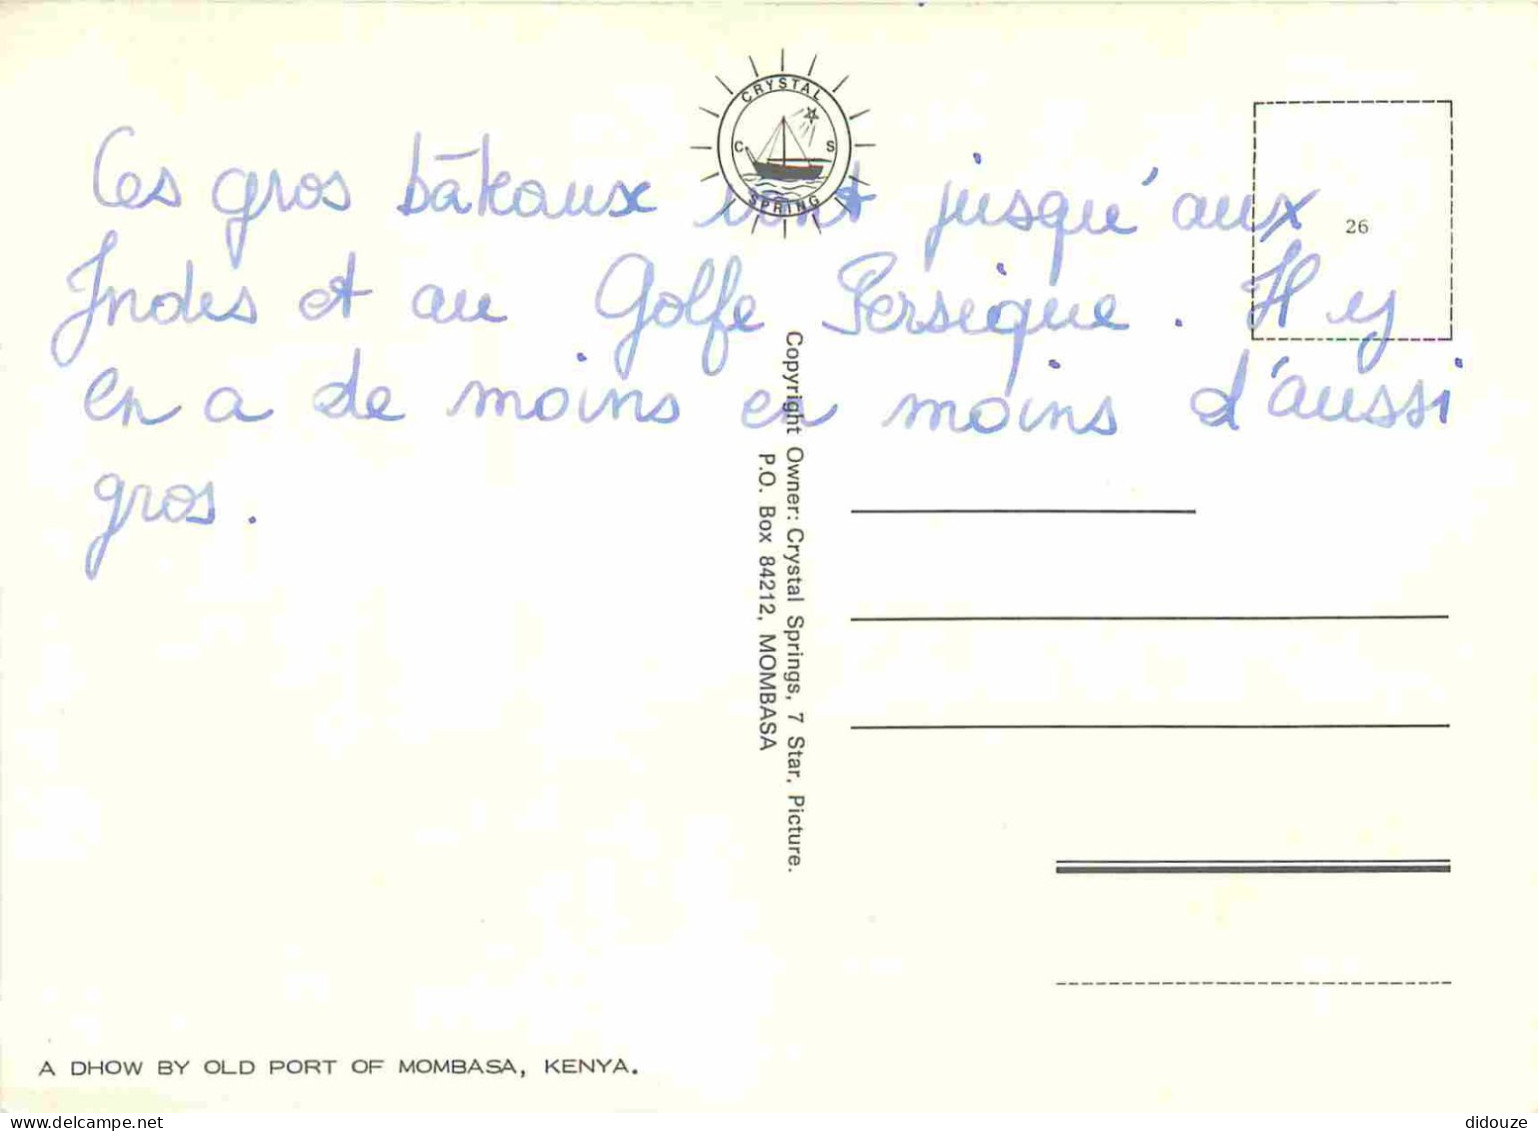 CRYSTAL
C S
SPRING
26
Ces gros bâteaux vont jusqu'aux
Indes et au Golfe Persique. Il y
en a de moins en moins d'aussi
gros.
Copyright Owner: Crystal Springs, 7 Star, Picture.
P.O. Box 84212, MOMBASA
A DHOW BY OLD PORT OF MOMBASA, KENYA.
delcampe.net
didouze